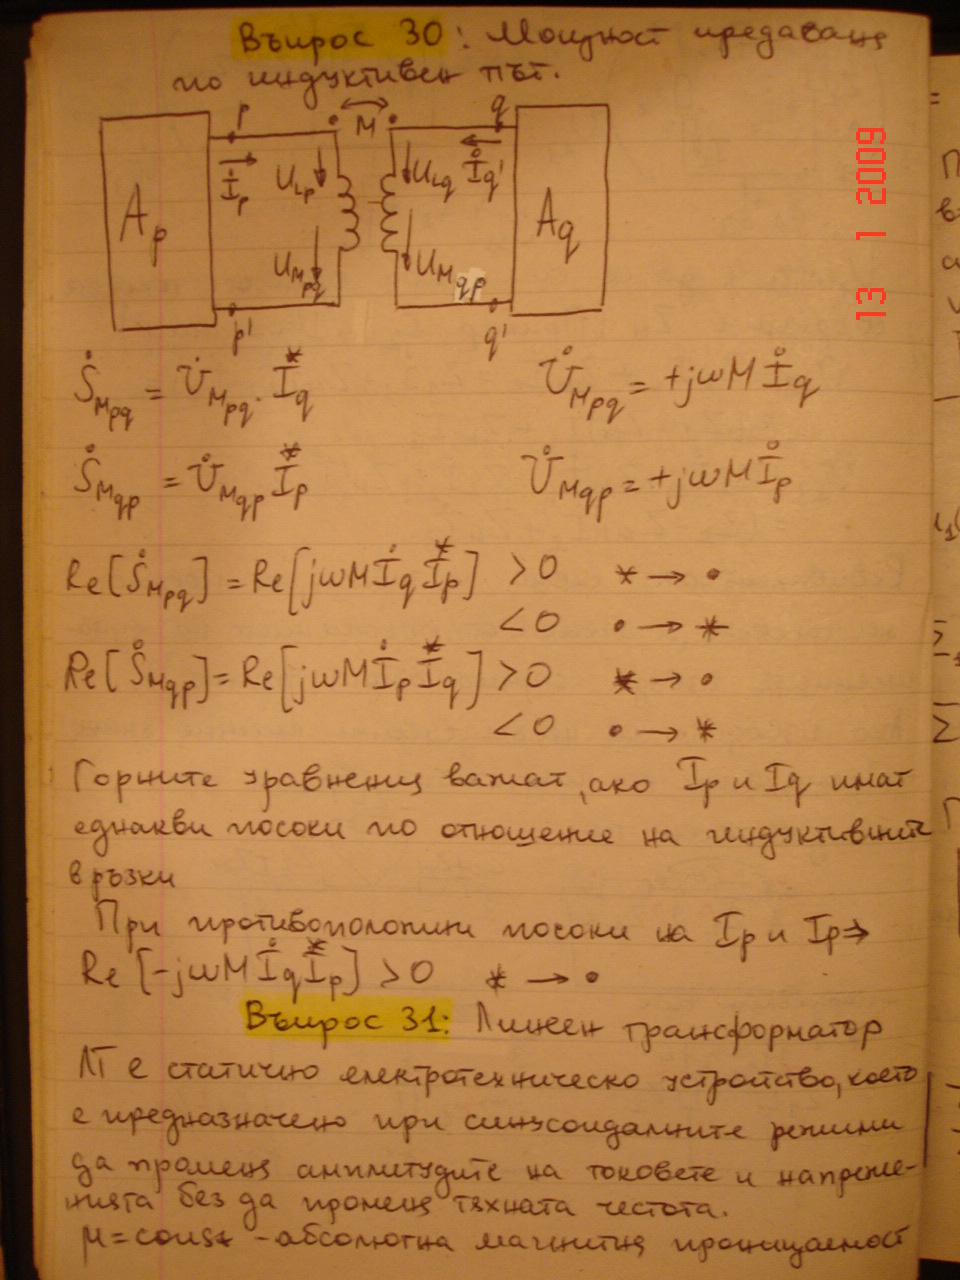 Въпрос 30: Мощност предавана
по индуктивен път.
p M q
İp U_Lp U_Lq İq'
Ap Aq
U_Mpq U_Mqp
p' q'
Ṡ_Mpq = U̇_Mpq . I*q U̇_Mpq = +jωM İq
Ṡ_Mqp = U̇_Mqp I*p U̇_Mqp = +jωM İp
Re[Ṡ_Mpq] = Re[jωM İq I*p] >0 * → •
<0 • → *
Re[Ṡ_Mqp] = Re[jωM İp I*q] >0 * → •
<0 • → *
Горните уравнения важат, ако Ip и Iq имат
еднакви посоки по отношение на индуктивните
връзки
При противоположни посоки на Ip и Ip ⇒
Re [-jωM İq I*p] >0 * → •
Въпрос 31: Линеен трансформатор
ЛТ е статично електротехническо устройство, което
е предназначено при синусоидалните режими
да променя амплитудите на токовете и напреже-
нията без да променя тяхната честота.
μ = const - абсолютна магнитна проницаемост
13 1 2009